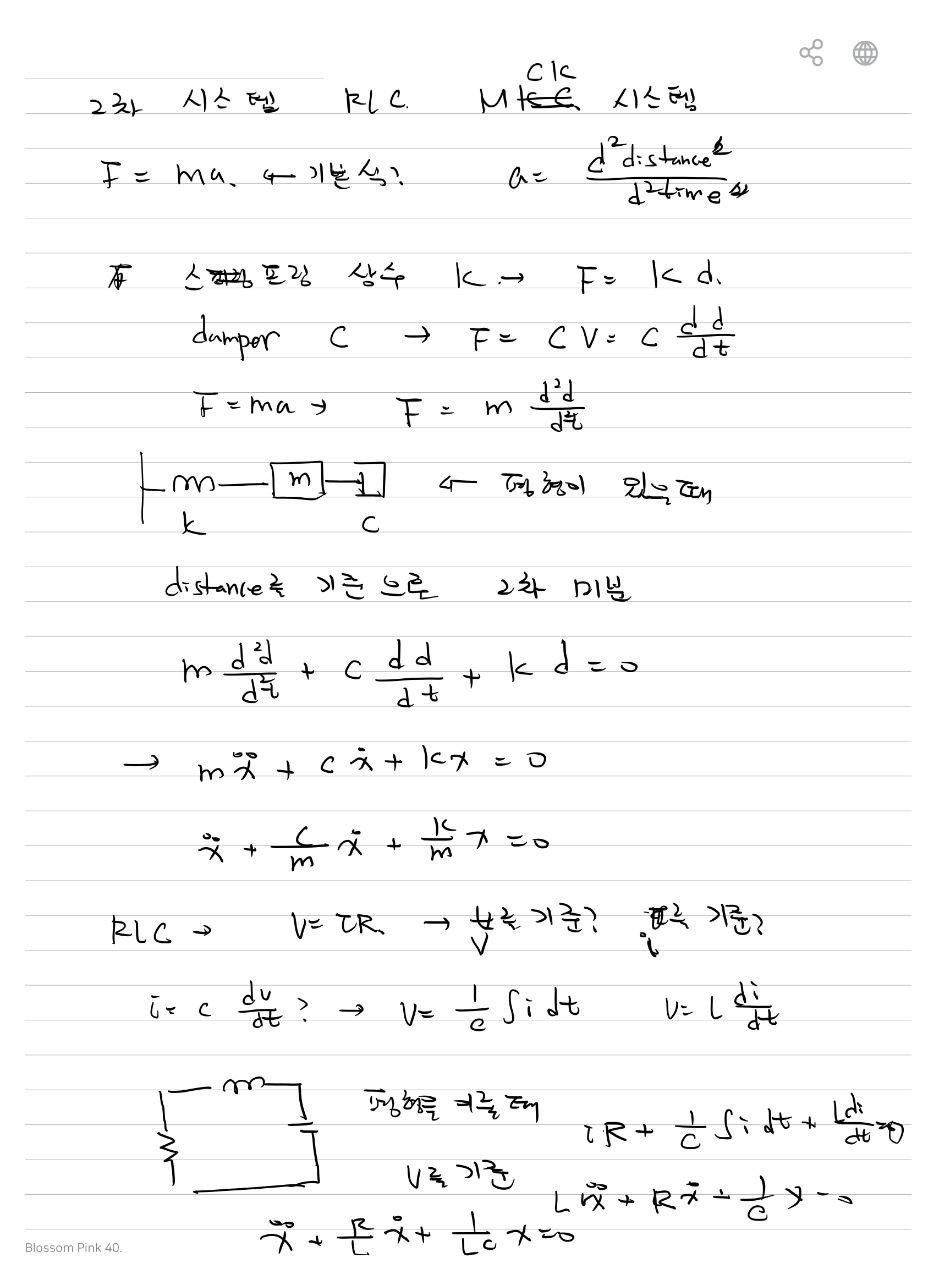 2차 시스템 RLC. MCK 시스템
F = ma. ← 기본식? a = d²distance / d²time
스프링 상수 K → F = K d.
damper C → F = C V = C dd/dt
F = ma → F = m d²d/d²t
m
k C ← 평형이 되었을때
distance를 기준으로 2차 미분
m d²d/d²t + C dd/dt + k d = 0
→ mẍ + cẋ + kx = 0
ẍ + C/m ẋ + k/m x = 0
RLC → V = iR. → V를 기준? i를 기준?
i = C dv/dt ? → V = 1/C ∫i dt V = L di/dt
평형를 이룰때 iR + 1/C ∫i dt + L di/dt = 0
V를 기준 Lẍ + Rẋ + 1/C x = 0
ẍ + R/L ẋ + 1/LC x = 0
Blossom Pink 40.